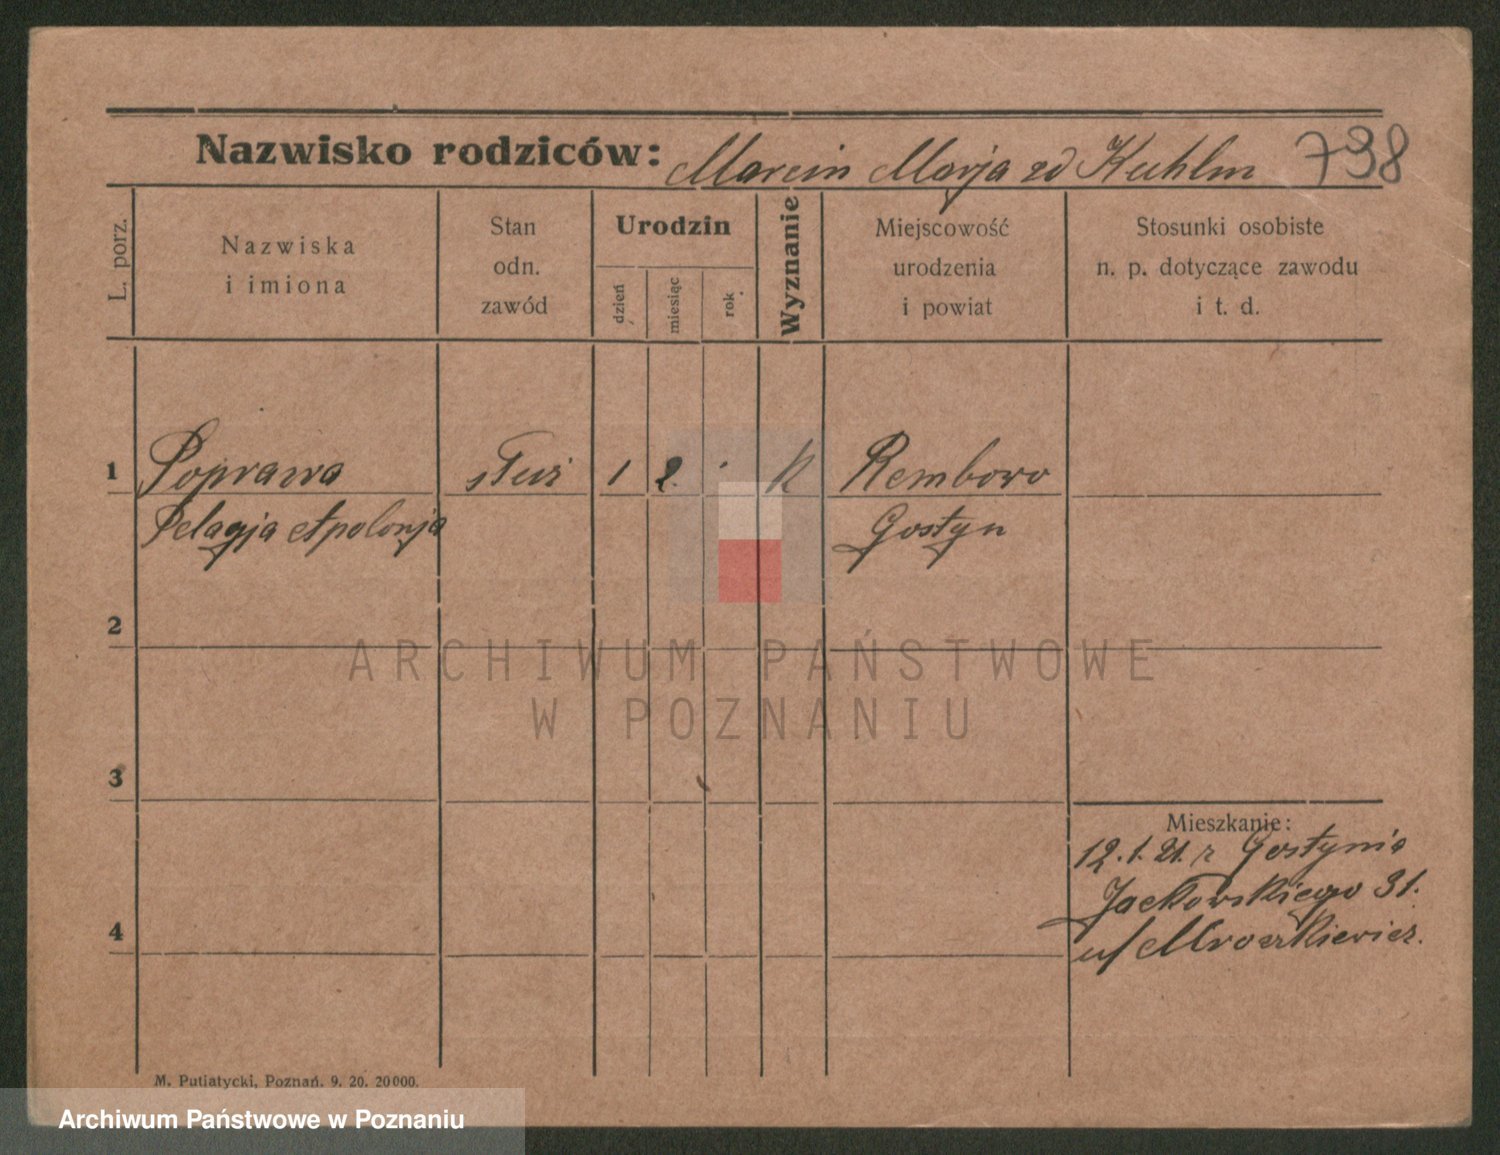 Nazwisko rodziców: Marcin Marja zd Kuhlm 798
L. porz.
Nazwiska
i imiona
Stan
odn.
zawód
Urodzin
dzień
miesiąc
rok
Wyznanie
Miejscowość
urodzenia
i powiat
Stosunki osobiste
n. p. dotyczące zawodu
i t. d.
1 Poprawa służ 1 2. K Rembowo
Pelagja Apolonja Gostyn
2
ARCHIWUM PAŃSTWOWE
W POZNANIU
3
Mieszkanie:
12.1.21. z Gostynia
Jackowskiego 31.
4
u/ Mroczkiewicz.
M. Putiatycki, Poznań. 9. 20. 20000.
Archiwum Państwowe w Poznaniu